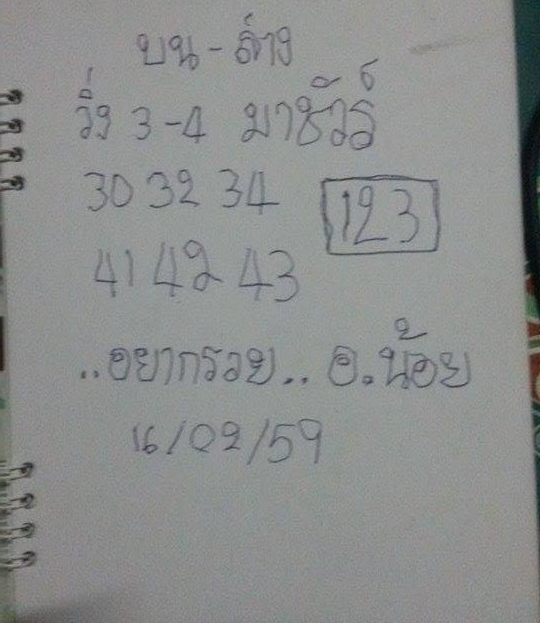 บน - ล่าง
วิ่ง 3-4 มาชัวร์
30 32 34
123
41 42 43
..อยากรวย.. อ.น้อย
16/02/59